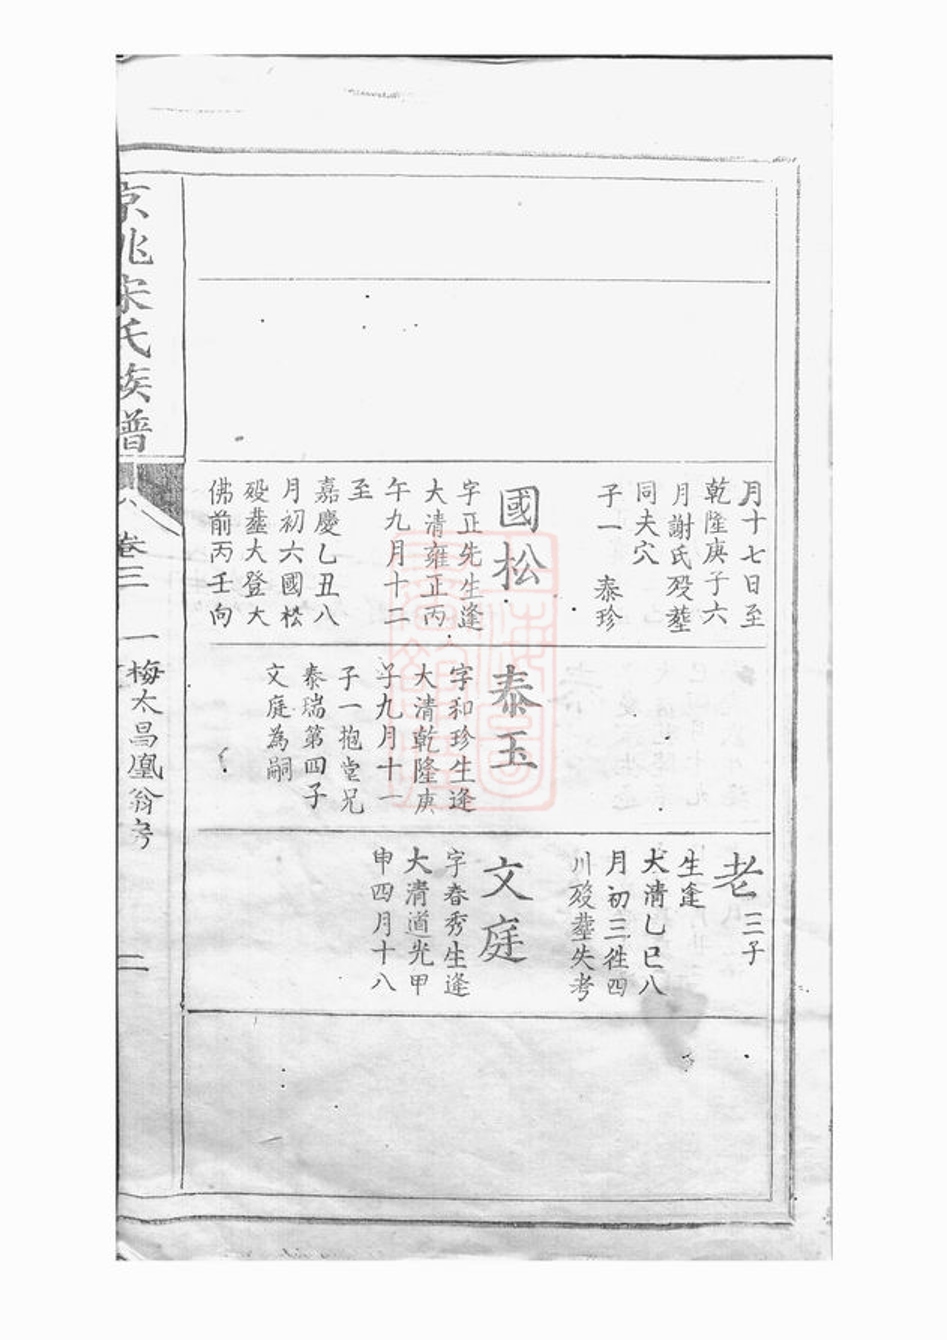 月十七日至
乾隆庚子六
月謝氏歿塟
同夫穴
子一 泰珍
國松
字正先生逢
大清雍正丙
午九月十二
至
嘉慶乙丑八
月初六國松
歿塟大登大
佛前丙壬向
泰玉
字和珍生逢
大清乾隆庚
子九月十一
子一抱堂兄
泰瑞第四子
文庭為嗣
老三子
生逢
大清乙巳八
月初三徃四
川歿塟失考
文庭
字春秀生逢
大清道光甲
申四月十八
京兆宋氏族譜
卷三 一梅太昌凰翁房 二